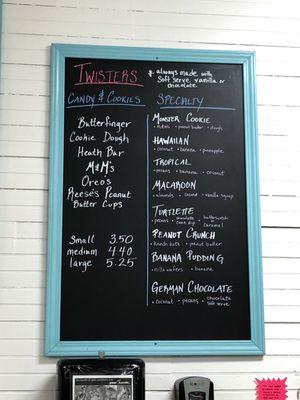 TWISTERS
* always made with
soft serve vanilla or
chocolate
CANDY & COOKIES
Butterfinger
Cookie Dough
Heath Bar
M&M's
Oreo's
Reese's Peanut
Butter Cups
Small 3.50
medium 4.40
large 5.25
SPECIALTY
MONSTER COOKIE
• m&m's • peanut butter • dough
HAWAIIAN
• coconut • banana • pineapple
TROPICAL
• pecans • banana • coconut
MACAROON
• almonds • coconut • vanilla syrup
TURTLETTE
• pecans • chocolate • butterscotch
cone dip caramel
PEANUT CRUNCH
• crunch kote • peanut butter
BANANA PUDDING
• nilla wafers • banana
GERMAN CHOCOLATE
• coconut • pecans • chocolate
soft serve